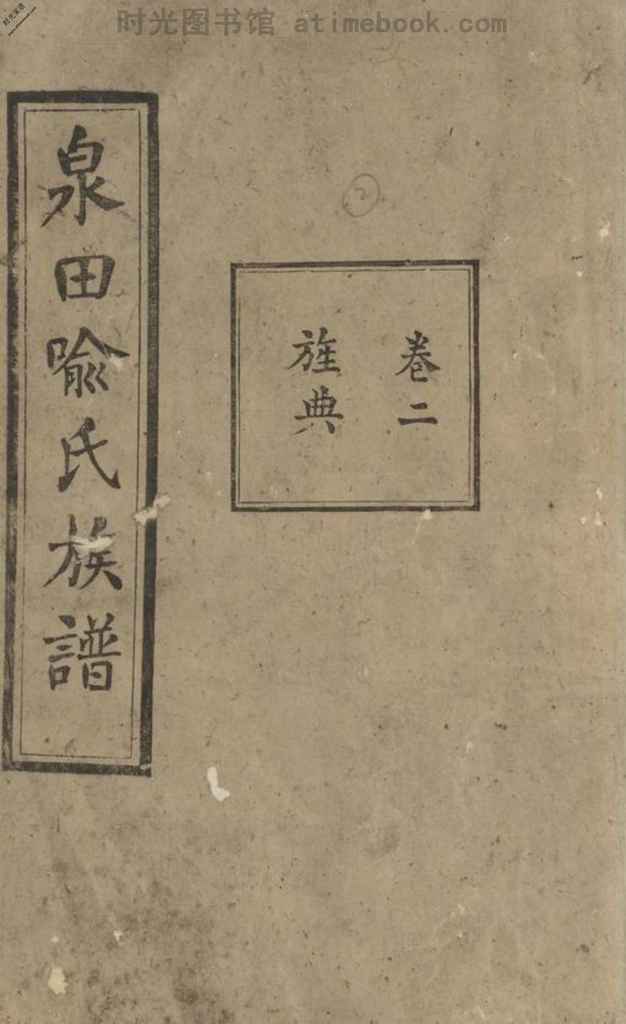 时光图书馆 atimebook.com
泉田喻氏族譜
2
卷二
旌典